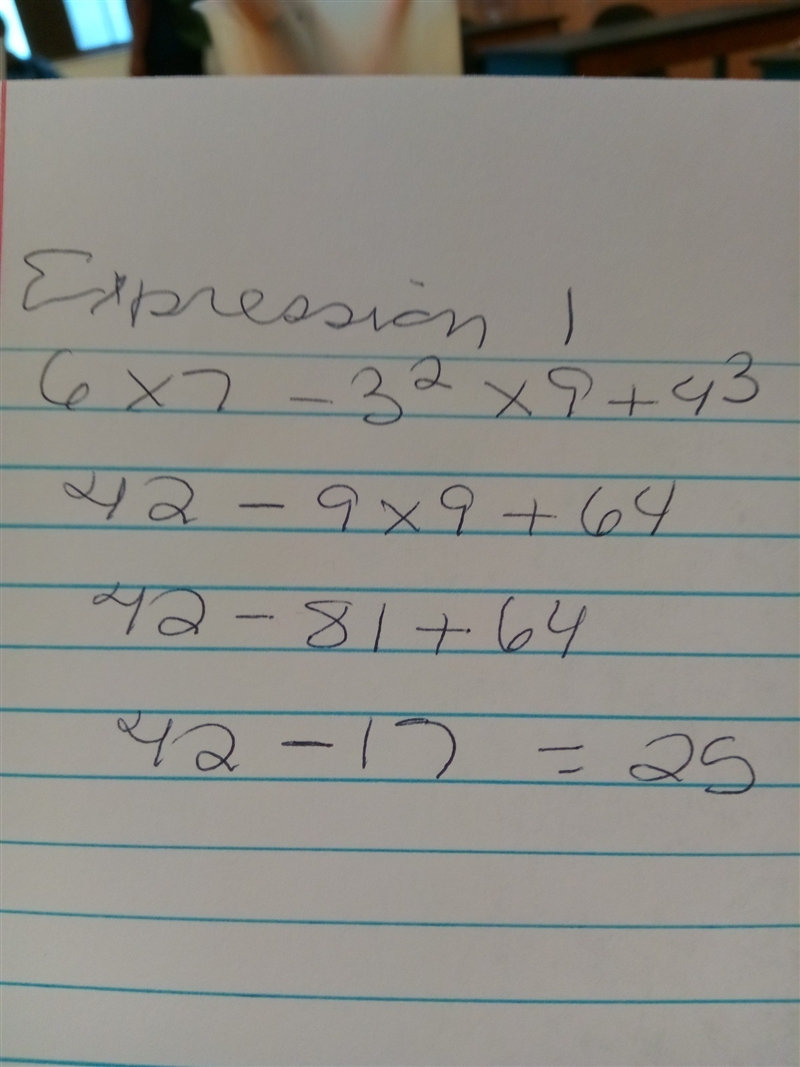 Expression 1
6 × 7 - 3² × 9 + 4³
42 - 9 × 9 + 64
42 - 81 + 64
42 - 17 = 25